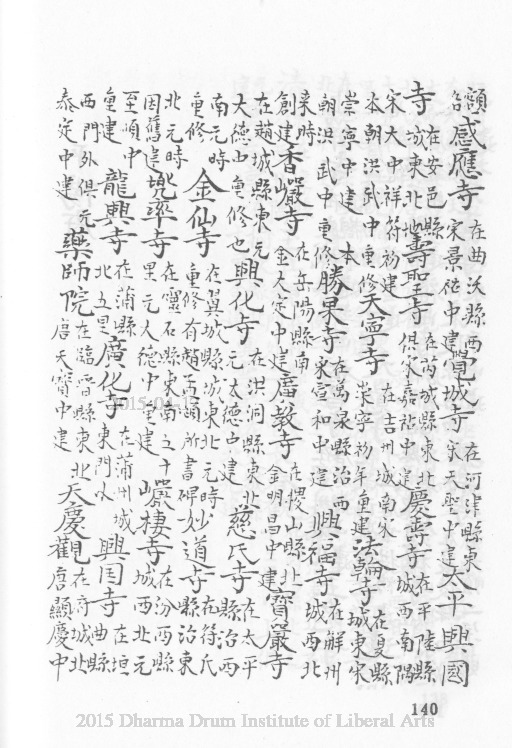 額名感應寺在曲沃縣西宋景祐中建覺城寺在河津縣東宋天聖中建太平興國
寺在安邑縣城東北地壽聖寺在芮城縣東北俱宋嘉祐中建慶壽寺在平陸縣城西南隅
宋大中祥符初建本朝洪武中重修天寧寺在吉州城南宋崇寧初年重建法輪寺在夏縣城東宋
崇寧中建本朝洪武中重修勝果寺在萬泉縣治西宋宣和中建興福寺在解州城西北
來時創建香嚴寺在岳陽縣南金大定中建廣教寺在稷山縣北金明昌中建寶嚴寺
在趙城縣東元大德中重修也興化寺在洪洞縣東北元大德中建慈氏寺在太平縣治西
南元時重修金仙寺在翼城縣城東北元時重修有趙孟頫所書碑妙道寺在符氏縣治東
北元時因舊建兜率寺在靈石縣東南三十里元大德中重建巖棲寺在汾西縣城西北元
至順中重建龍興寺在蒲縣北五里廣化寺在蒲州城東門外興囯寺在垣曲縣
西門外俱元泰定中建藥師院在臨晉縣東北唐天寶中建天慶觀在府城北唐顯慶中
140
2015 Dharma Drum Institute of Liberal Arts